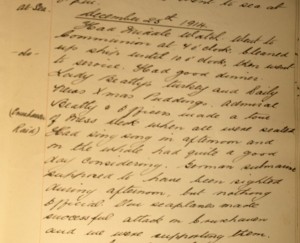 at Sea
December 25th, 1914.
Had Middle Watch. Went to
Communion at 7 o'clock, cleaned
- do -
up ship until 10 o'clock, then went
to service. Had good dinner.
Lady Beatty's turkey and Lady
Xmas Puddings. Admiral
Beatty & Officers made a tour
(Cuxhaven
of Mess deck when all were seated
Raid)
Had sing song in afternoon and
on the whole had quite a good
Xmas considering. German submarine
supposed to have been sighted
during afternoon, but nothing
official. Our seaplanes made
successful attack on Cuxhaven
and we were supporting them.